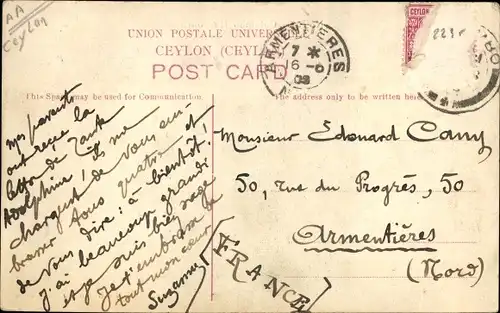 AA
Ceylon
UNION POSTALE UNIVERSELLE
CEYLON (CEYLAN)
POST CARD
ARMENTIERES
7 *
6 -6
03
CEYLON
This Space may be used for Communication.
The address only to be written here.
mes parents
ont reçu la
lettre de Tante
Adolphine! ils me
chargent de vous em-
brasser tous quatre et
de vous dire : à bientôt!
j'ai beaucoup grandi
et je suis bien sage
Je t'embrasse de
tout mon cœur
Suzanne
Monsieur Edouard Cany
50, rue du Progrès, 50
Armentières
(Nord)
[FRANCE]